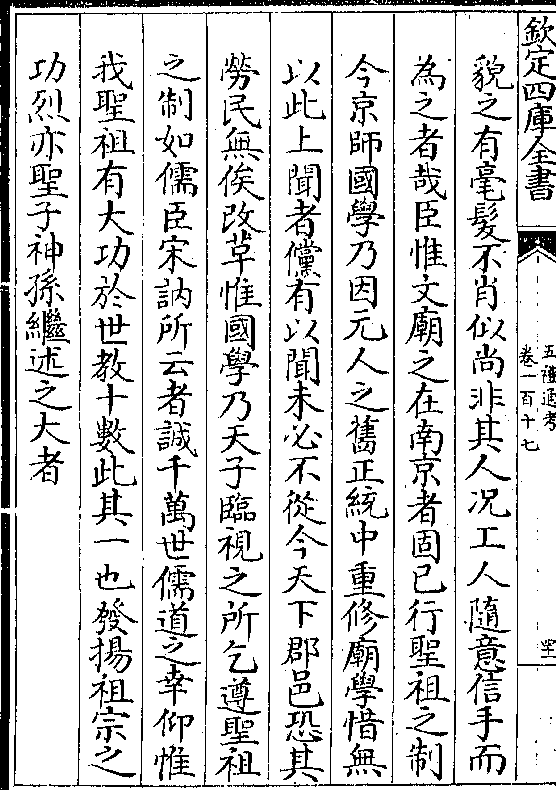 欽定四庫全書
五禮通考
卷一百十七
貌之有毫髮不肖似尚非其人况工人隨意信手而
為之者哉臣惟文廟之在南京者固已行聖祖之制
今京師國學乃因元人之舊正統中重修廟學惜無
以此上聞者儻有以聞未必不從今天下郡邑恐其
勞民無俟改革惟國學乃天子臨視之所乞遵聖祖
之制如儒臣宋訥所云者誠千萬世儒道之幸仰惟
我聖祖有大功於世教十數此其一也發揚祖宗之
功烈亦聖子神孫繼述之大者